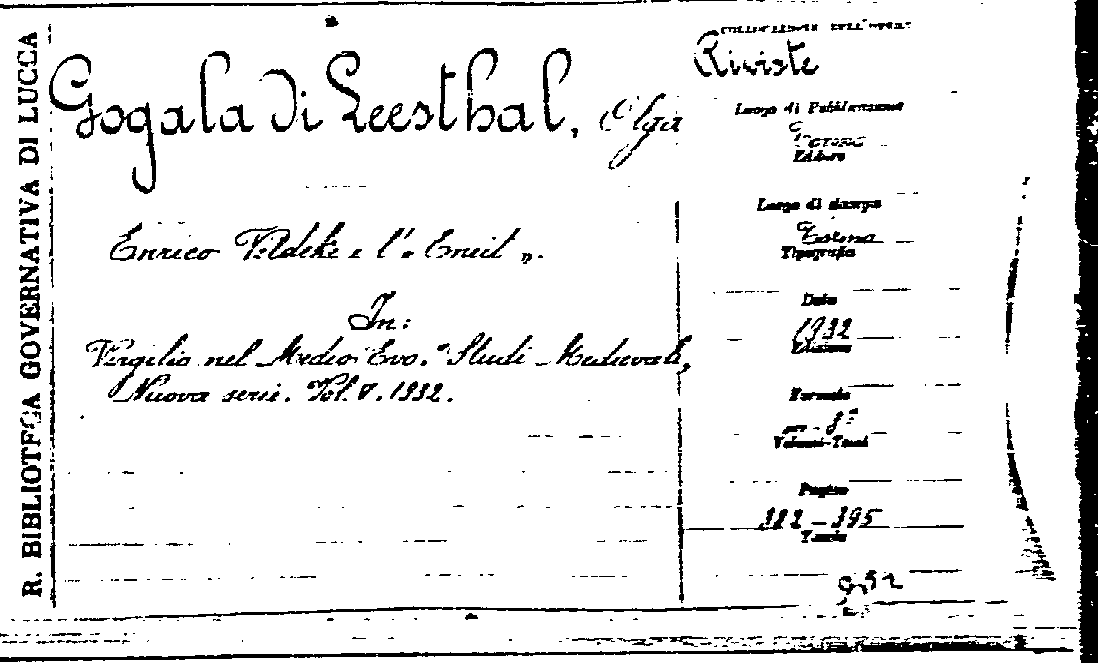 R. BIBLIOTECA GOVERNATIVA DI LUCCA
Gogala di Leesthal, Olga
Enrico Veldeke e l'« Eneit ».
In:
Virgilio nel Medio Evo. " Studi Medievali,
Nuova serie. Vol. V. 1932.
COLLOCAZIONE DELL'OPERA
Riviste
Luogo di Pubblicazione
Torino
Editore
Luogo di stampa
Tipografia
Data
1932
Edizione
Formato
in-8°
Volumi-Tomi
Pagine
382-395
Tavole